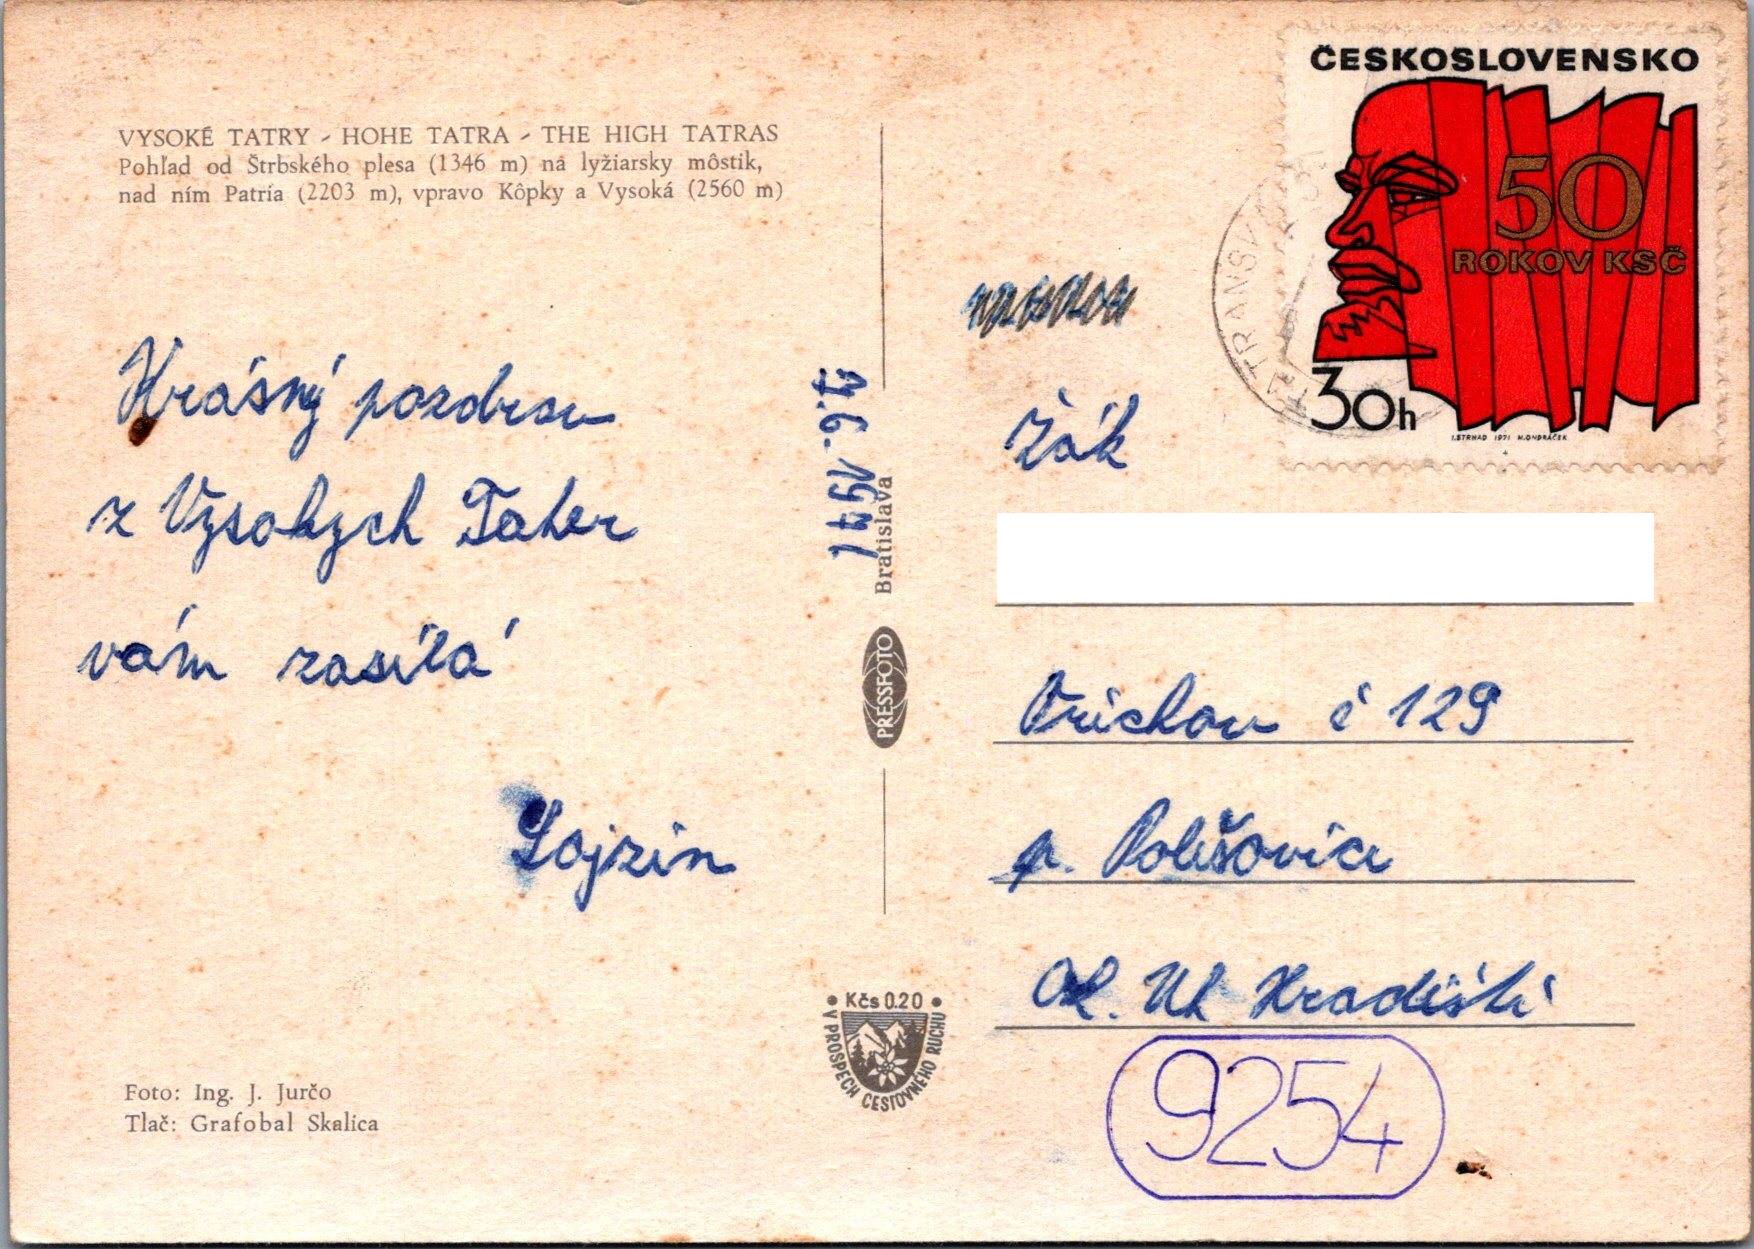 VYSOKÉ TATRY - HOHE TATRA - THE HIGH TATRAS
Pohľad od Štrbského plesa (1346 m) na lyžiarsky môstik,
nad ním Patria (2203 m), vpravo Kôpky a Vysoká (2560 m)
Krásný pozdrav
z Vysokych Tater
vám zasílá
Lojzin
Foto: Ing. J. Jurčo
Tlač: Grafobal Skalica
7.6.1971
Bratislava
PRESSFOTO
• Kčs 0.20 •
V PROSPECH CESTOVNÉHO RUCHU
ČESKOSLOVENSKO
50
ROKOV KSČ
30h
I. STRNAD 1971 M. ONDRÁČEK
Žák
č 129
p. Polešovice
Uh Hradiště
9254